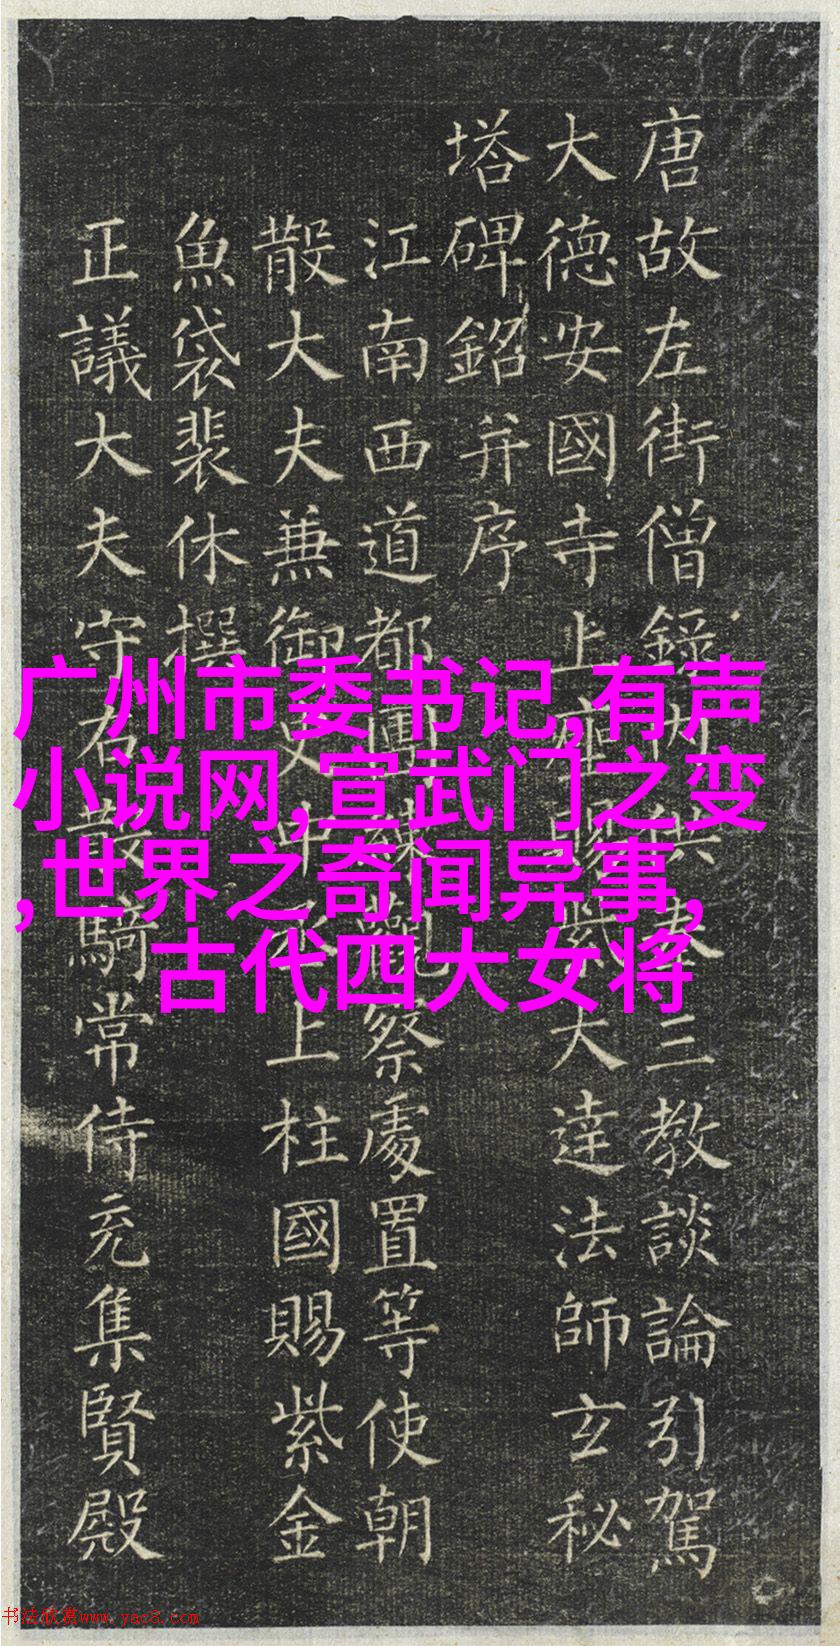 唐故左街僧錄內供奉三教談論引駕
大德安國寺上座賜紫大達法師玄秘
塔碑銘并序
江南西道都團練觀察處置等使朝
散大夫兼御史中丞上柱國賜紫金
魚袋裴休撰
正議大夫守右散騎常侍充集賢殿
广州市委书记,有声
小说网,宣武门之变
,世界之奇闻异事,
古代四大女将
书法欣赏www.yac8.com